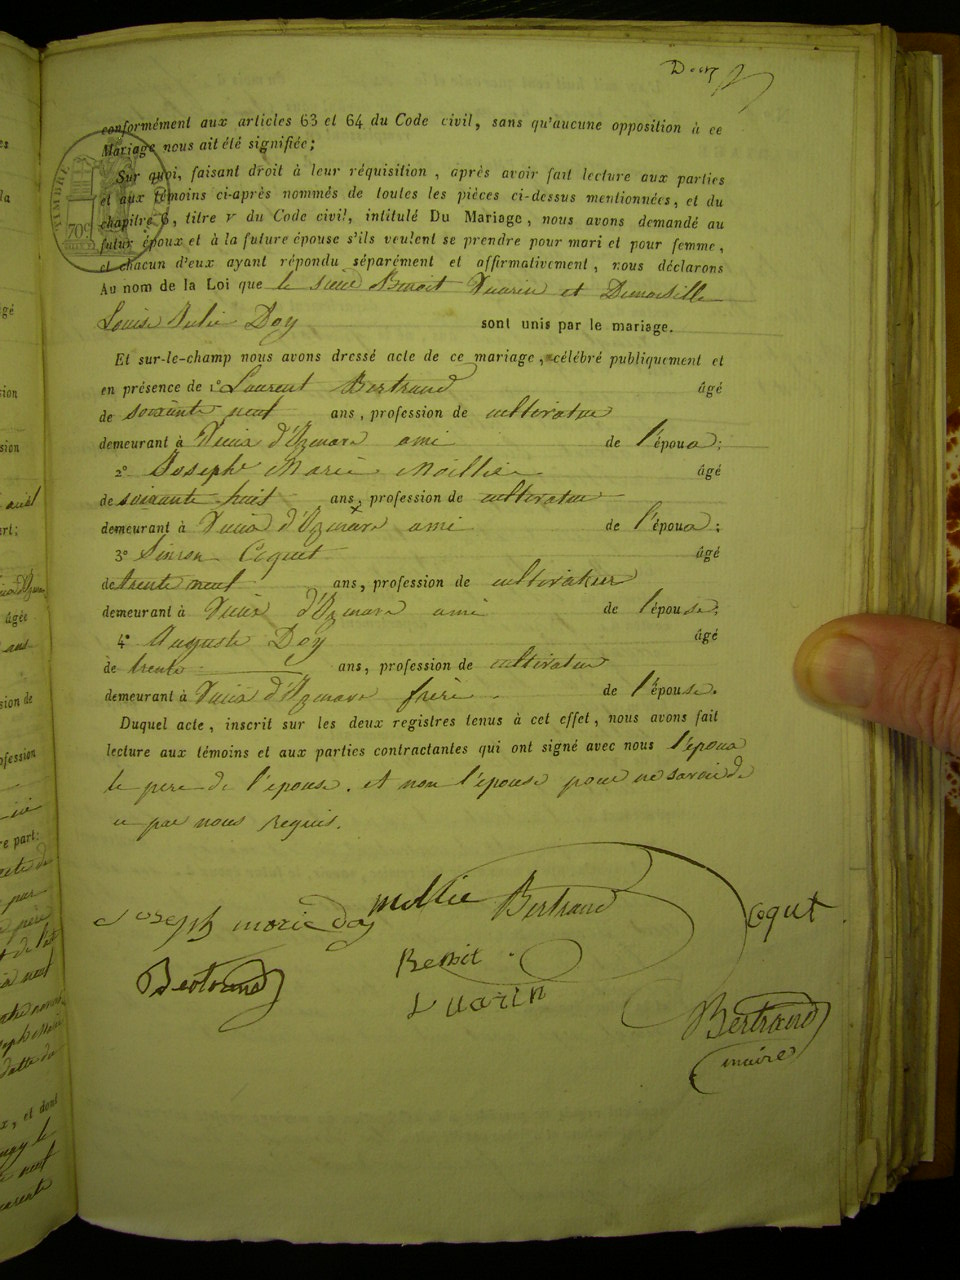 conformément aux articles 63 et 64 du Code civil, sans qu'aucune opposition à ce
Mariage nous ait été signifiée;
Sur quoi, faisant droit à leur réquisition, après avoir fait lecture aux parties
et aux témoins ci-après nommés de toutes les pièces ci-dessus mentionnées, et du
chapitre 6, titre V du Code civil, intitulé Du Mariage, nous avons demandé au
futur époux et à la future épouse s'ils veulent se prendre pour mari et pour femme,
et chacun d'eux ayant répondu séparément et affirmativement, nous déclarons
Au nom de la Loi que le sieur Benoit Vuarin et Demoiselle
Louise Julie Doy sont unis par le mariage.
Et sur-le-champ nous avons dressé acte de ce mariage, célébré publiquement et
en présence de 1° Laurent Bertrand âgé
de soixante neuf ans, profession de cultivateur
demeurant à ami de l'époux;
2° Joseph Marie Mollie âgé
de soixante huit ans, profession de cultivateur
demeurant à ami de l'époux;
3° Simon Coqut âgé
de trente neuf ans, profession de cultivateur
demeurant à ami de l'épouse;
4° Auguste Doy âgé
de trente ans, profession de cultivateur
demeurant à frère de l'épouse.
Duquel acte, inscrit sur les deux registres tenus à cet effet, nous avons fait
lecture aux témoins et aux parties contractantes qui ont signé avec nous l'époux
le père de l'épouse. et non l'épouse pour ne savoir de
ce par nous requis.
Joseph marie Doy mollie Bertrand Coqut
Bertrand Benoit
Vuarin Bertrand
maire
TIMBRE